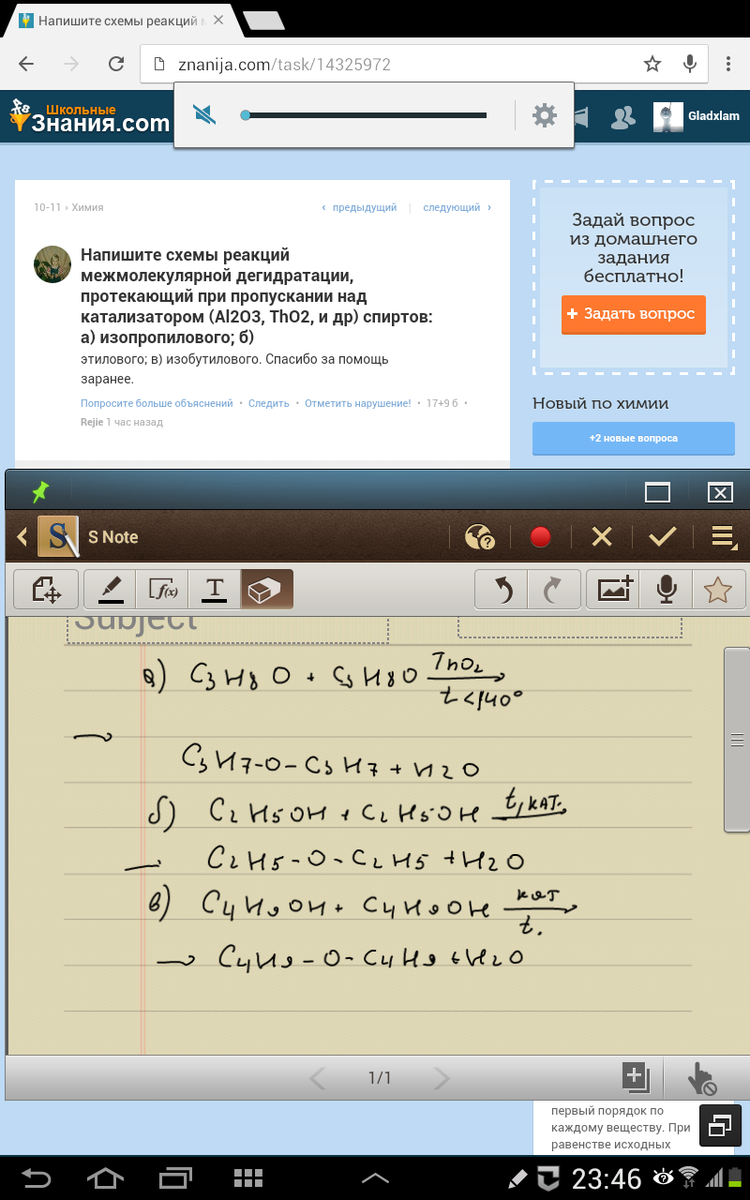 Напишите схемы реакций м
znanija.com/task/14325972
Школьные
Знания.com
Gladxlam
10-11 › Химия
‹ предыдущий | следующий ›
Напишите схемы реакций
межмолекулярной дегидратации,
протекающий при пропускании над
катализатором (Al2O3, ThO2, и др) спиртов:
а) изопропилового; б)
этилового; в) изобутилового. Спасибо за помощь
заранее.
Попросите больше объяснений • Следить • Отметить нарушение! • 17+9 б •
Rejie 1 час назад
Задай вопрос
из домашнего
задания
бесплатно!
+ Задать вопрос
Новый по химии
+2 новые вопроса
S Note
f(x)
T
Subject
а) C3H8O + C3H8O ThO2
t<140°
→
C3H7-O-C3H7 + H2O
б) C2H5OH + C2H5OH t, кат.
— C2H5-O-C2H5 + H2O
в) C4H9OH + C4H9OH кат
t.
→ C4H9-O-C4H9 + H2O
1/1
первый порядок по
каждому веществу. При
равенстве исходных
23:46